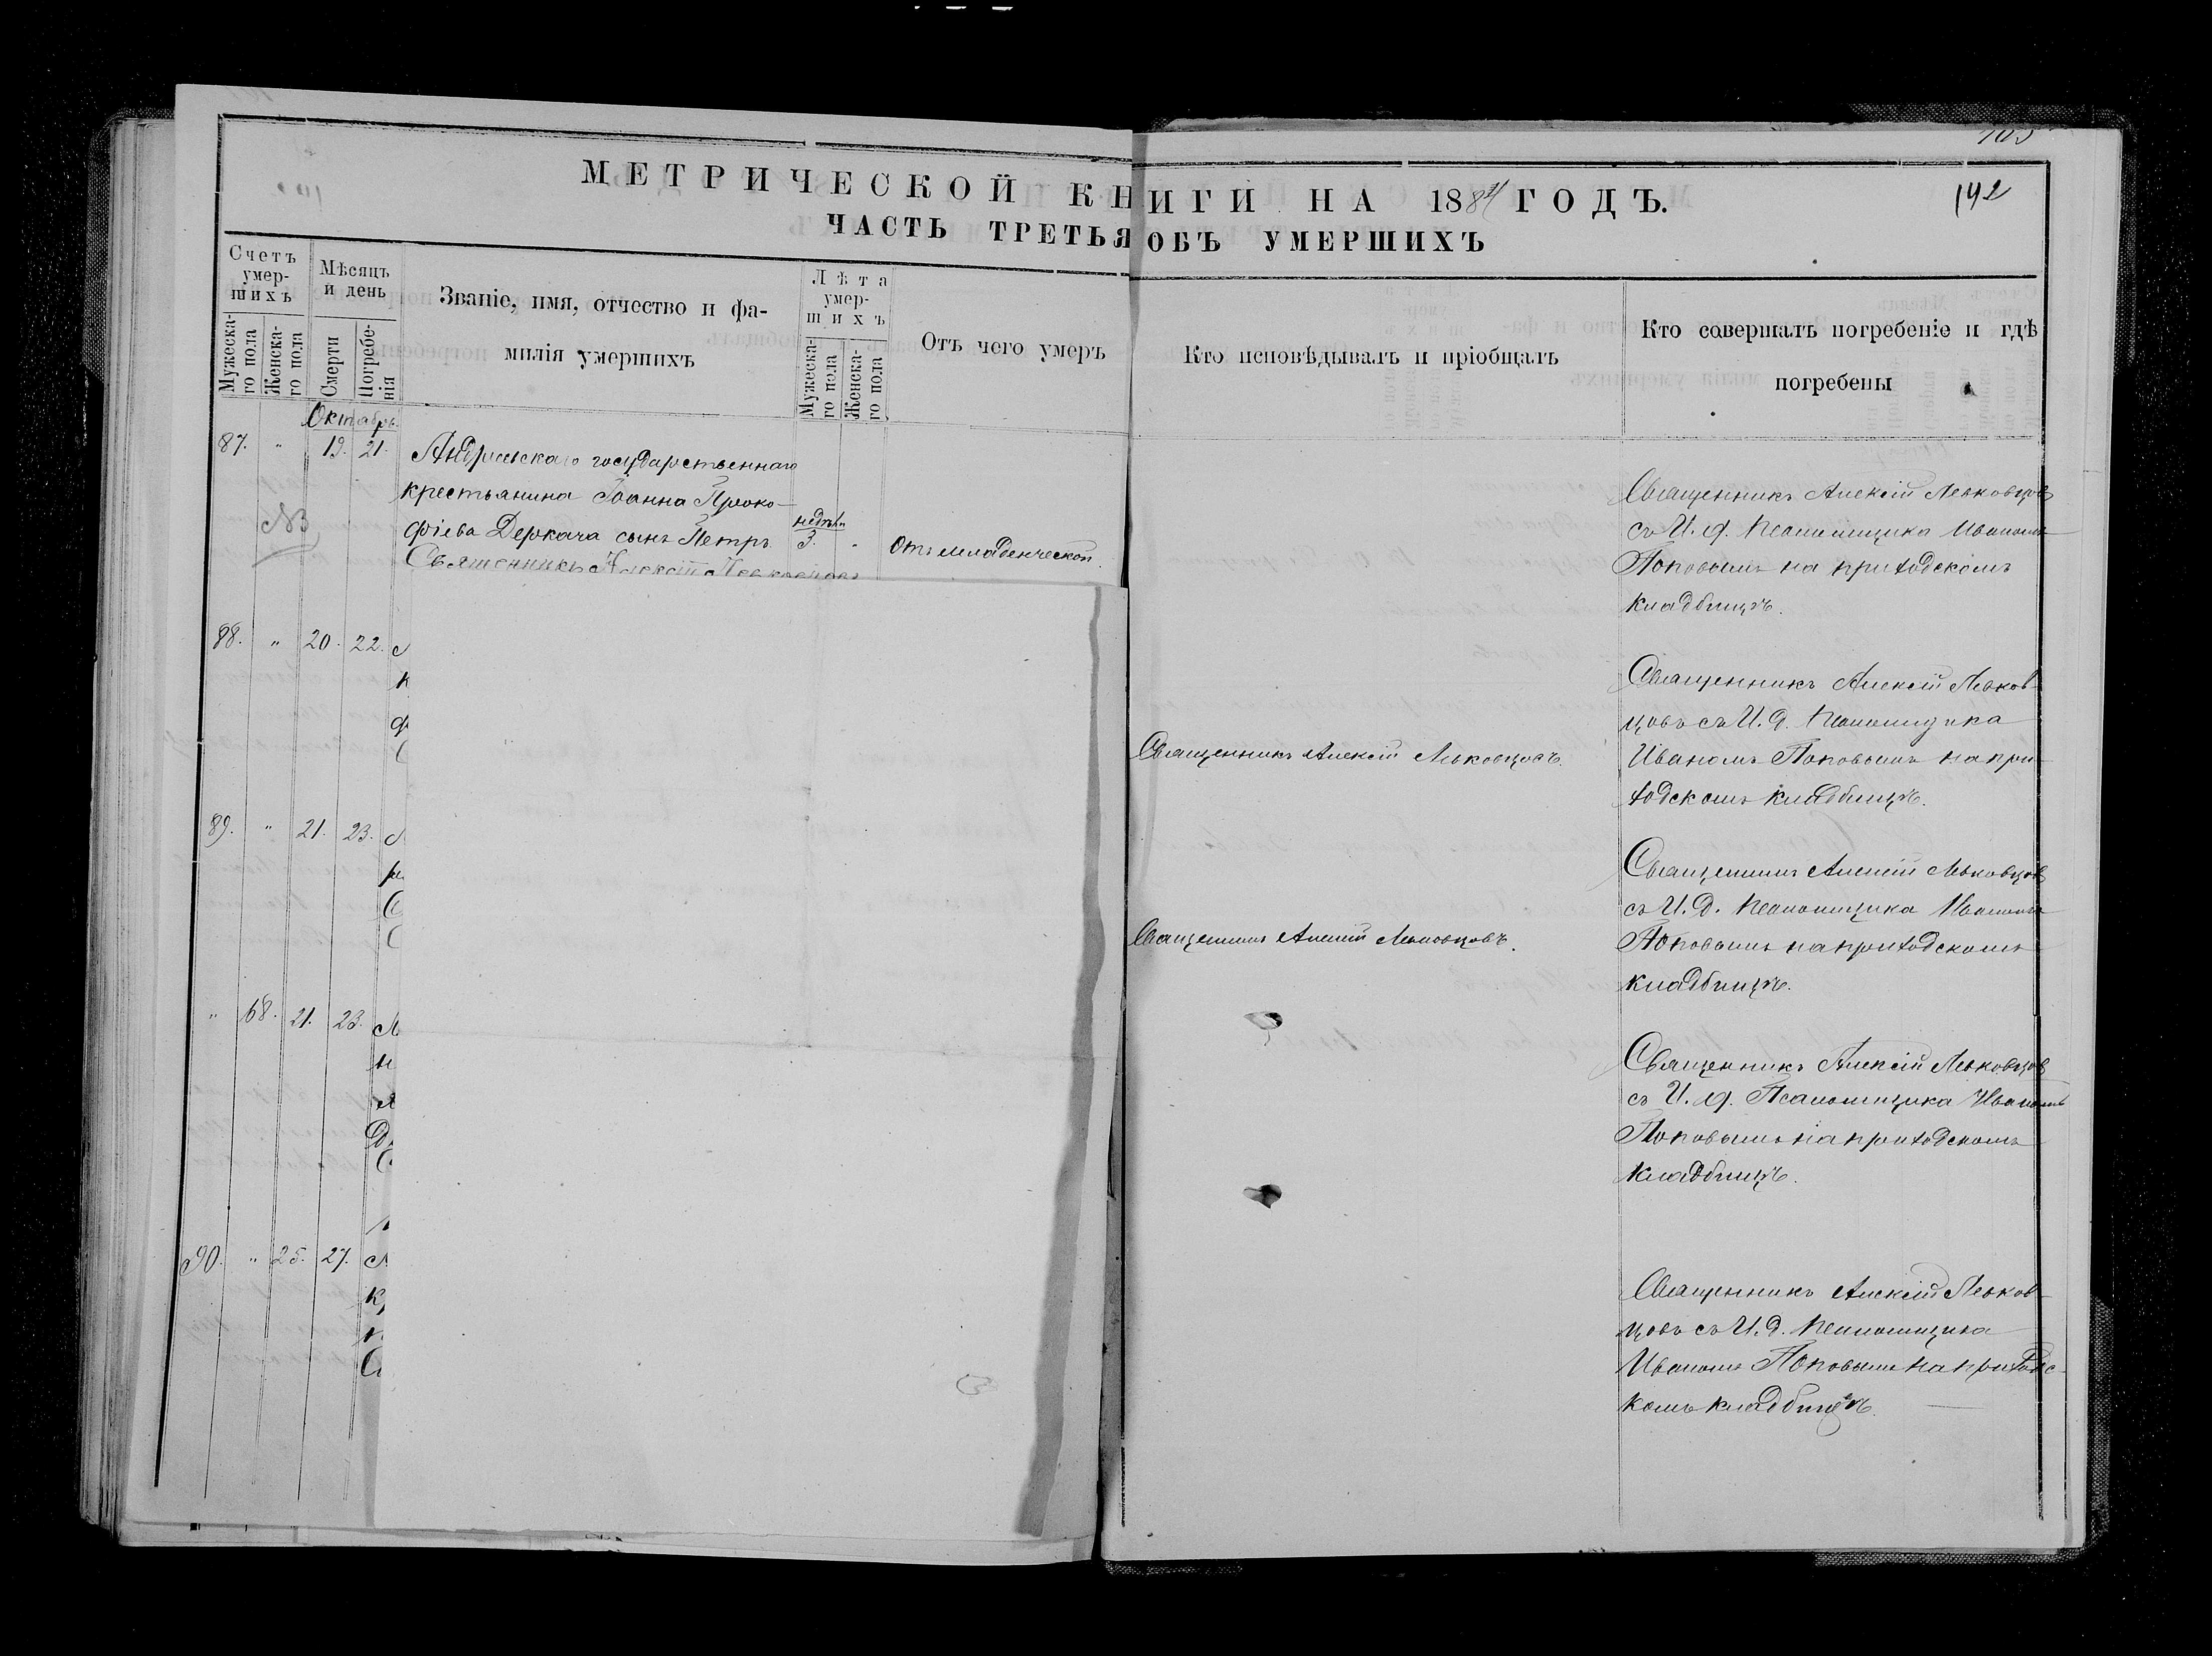 МЕТРИЧЕСКОЙ КНИГИ НА 1884 ГОДЪ.
142
ЧАСТЬ ТРЕТЬЯ ОБЪ УМЕРШИХЪ
Счетъ умер-
шихъ
Мужеска-
го пола
Женска-
го пола
Мѣсяцъ
и день
Смерти
Погребе-
нія
Званіе, имя, отчество и фа-
милія умершихъ
Лѣта
умер-
шихъ
Мужеска-
го пола
Женска-
го пола
Отъ чего умеръ
Кто исповѣдывалъ и пріобщалъ
Кто совершалъ погребеніе и гдѣ
погребены
Октябрь.
87. " 19. 21. государственнаго
крестьянина Іоанна Проко-
фіева Деркача сынъ Петръ.
недѣли
3. "
Отъ младенческой.
Священникъ Алексій
NB
Священникъ Алексій Левковцов
съ И. д. Псаломщика Иваномъ
Поповымъ на приходскомъ
кладбищѣ.
88. " 20. 22.
Священникъ Алексій Левковцовъ.
Священникъ Алексій Левков-
цовъ съ И. д. Псаломщика
Иваномъ Поповымъ на при-
ходскомъ кладбищѣ.
89. " 21. 23.
Священникъ Алексій Левковцовъ.
Священникъ Алексій Левковцов
съ И. д. Псаломщика Иваномъ
Поповымъ на приходскомъ
кладбищѣ.
" 68. 21. 23.
Священникъ Алексій Левковцов
съ И. д. Псаломщика Иваномъ
Поповымъ на приходскомъ
кладбищѣ.
90. " 25. 27.
Священникъ Алексій Левков-
цовъ съ И. д. Псаломщика
Иваномъ Поповымъ на приходс-
комъ кладбищѣ.